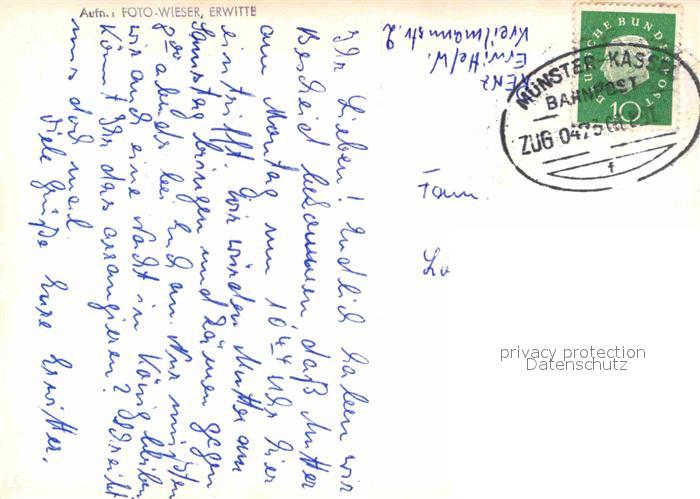 Aufn.: FOTO-WIESER, ERWITTE
Ihr Lieben! Endlich haben wir
Bescheid bekommen daß Mutter
am Montag um 16⁴⁴ Uhr hier
eintrifft. Wir würden Mutter am
Samstag bringen und kämen gegen
abends bei Euch an. Nur müßten
wir auch eine Nacht in König bleiben
Könnt Ihr das arrangieren? Schreibt
uns doch mal.
Viele Grüße Eure Erwitter.
Erwitte/W.
Kreilmannstr. 2
Fam.
Lo
DEUTSCHE BUNDESPOST
10
MÜNSTER-KASSEL
BAHNPOST
ZUG 0475
f
privacy protection
Datenschutz